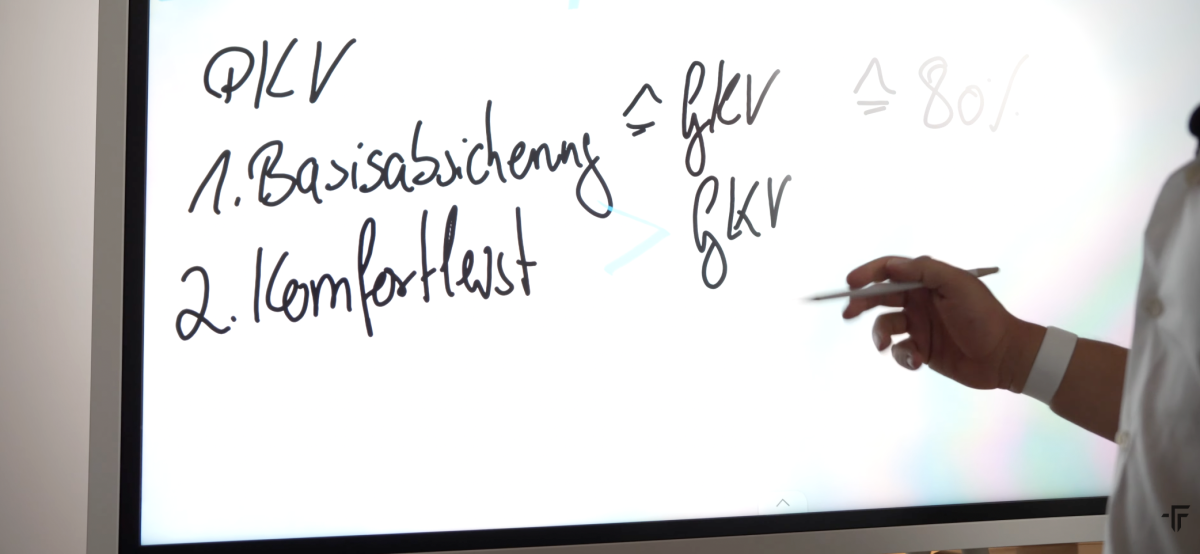 PKV
1. Basisabsicherung ≙ GKV ≙ 80%
2. Komfortleist > GKV